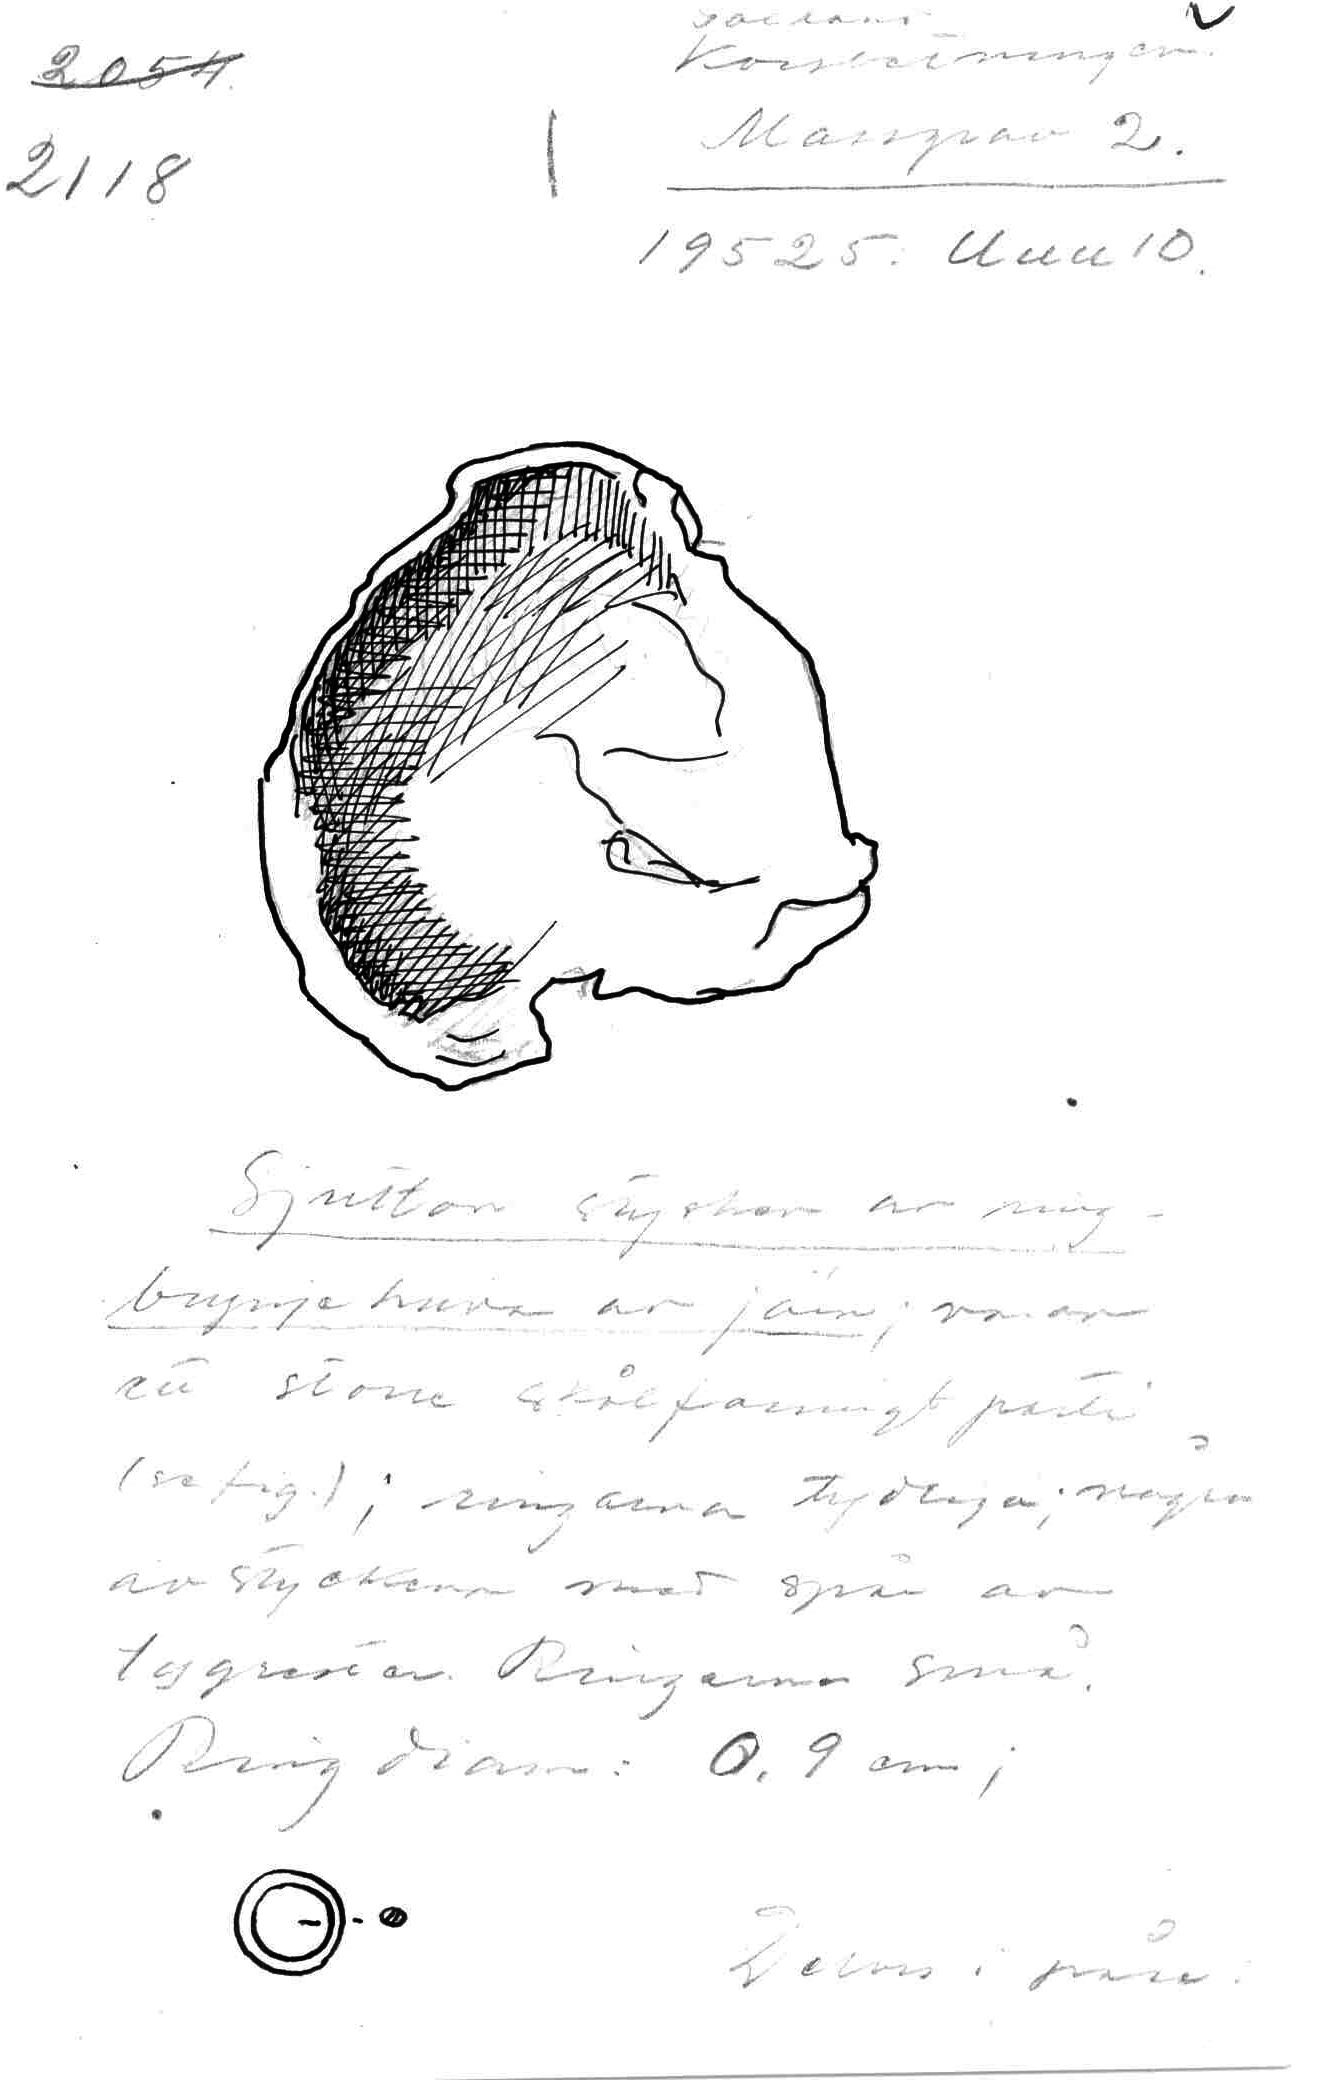 2054.
2118
Korsbetningen.
Massgrav 2.
19525: Uuu 10.
Sjutton stycken av ring-
brynjehuva av järn; varav
ett större skålformigt parti
(se fig.); ringarna tydliga; några
av styckena med spår av
tygrester. Ringarna små.
Ringdiam: 0.9 cm;
Delvis i påse.